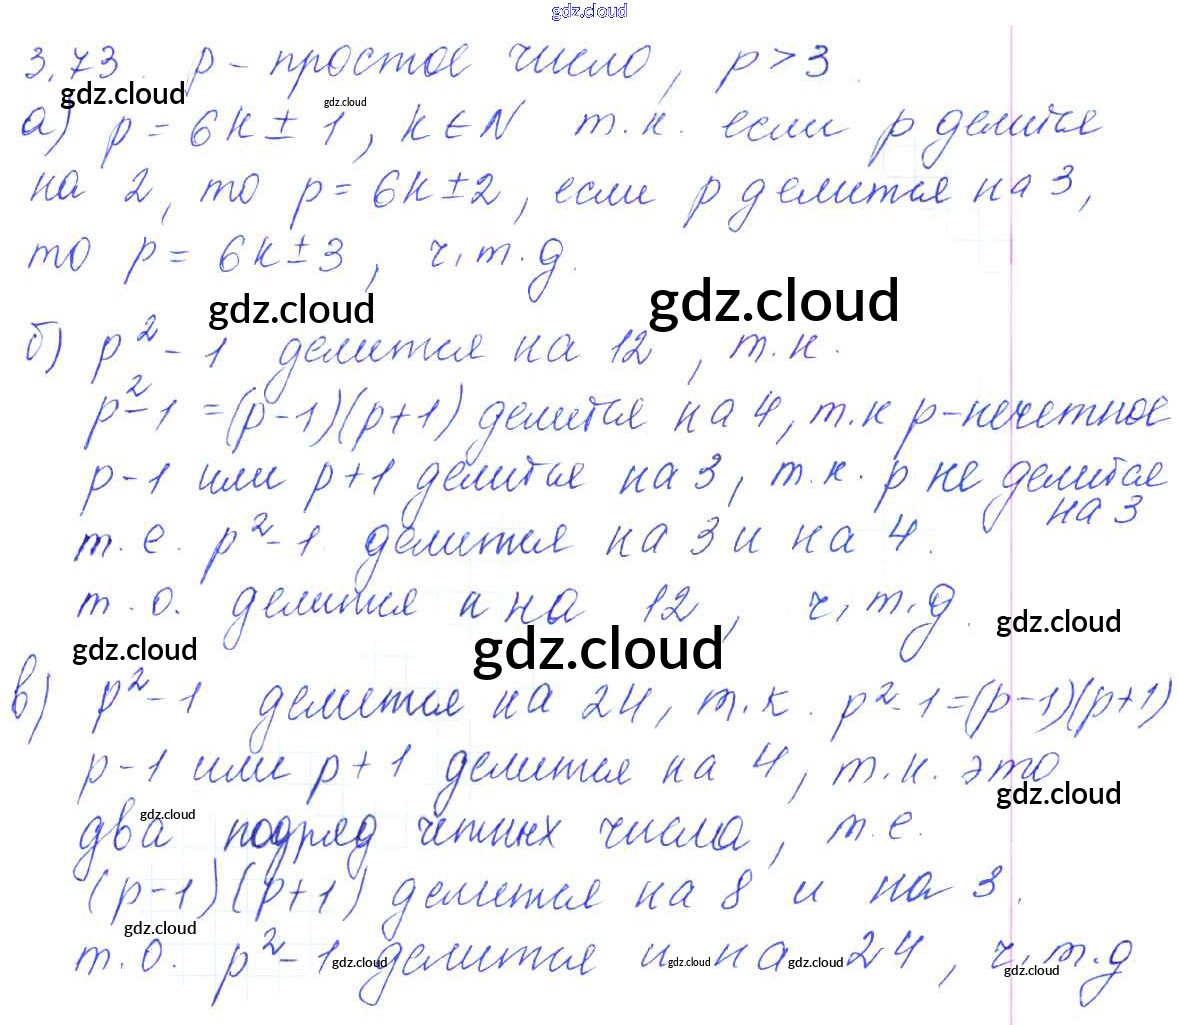 gdz.cloud
3.73. p - простое число, p > 3.
gdz.cloud
gdz.cloud
а) p = 6k ± 1, k ∈ N т.к. если p делится
на 2, то p = 6k ± 2, если p делится на 3,
то p = 6k ± 3, ч.т.д.
gdz.cloud
gdz.cloud
б) p² - 1 делится на 12, т.к.
p² - 1 = (p-1)(p+1) делится на 4, т.к p-нечетное
p-1 или p+1 делится на 3, т.к. p не делится
на 3
т.е. p² - 1 делится на 3 и на 4.
т.о. делится и на 12, ч.т.д.
gdz.cloud
gdz.cloud
gdz.cloud
в) p² - 1 делится на 24, т.к. p² - 1 = (p-1)(p+1)
p-1 или p+1 делится на 4, т.к. это
gdz.cloud
gdz.cloud
два подряд четных числа, т.е.
(p-1)(p+1) делится на 8 и на 3.
gdz.cloud
т.о. p² - 1 делится и на 24, ч.т.д
gdz.cloud
gdz.cloud
gdz.cloud
gdz.cloud